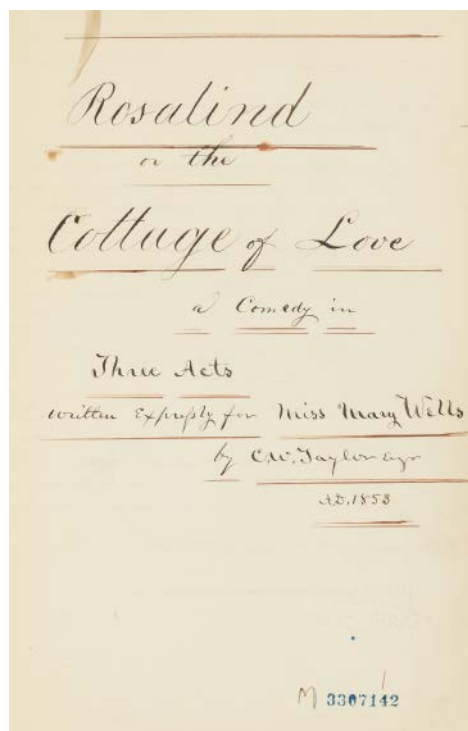 Rosalind
or the
Cottage of Love
a Comedy in
Three Acts
written Expressly for Miss Mary Wells
by C.W. Taylor Esqr
A.D. 1853
M 3367142